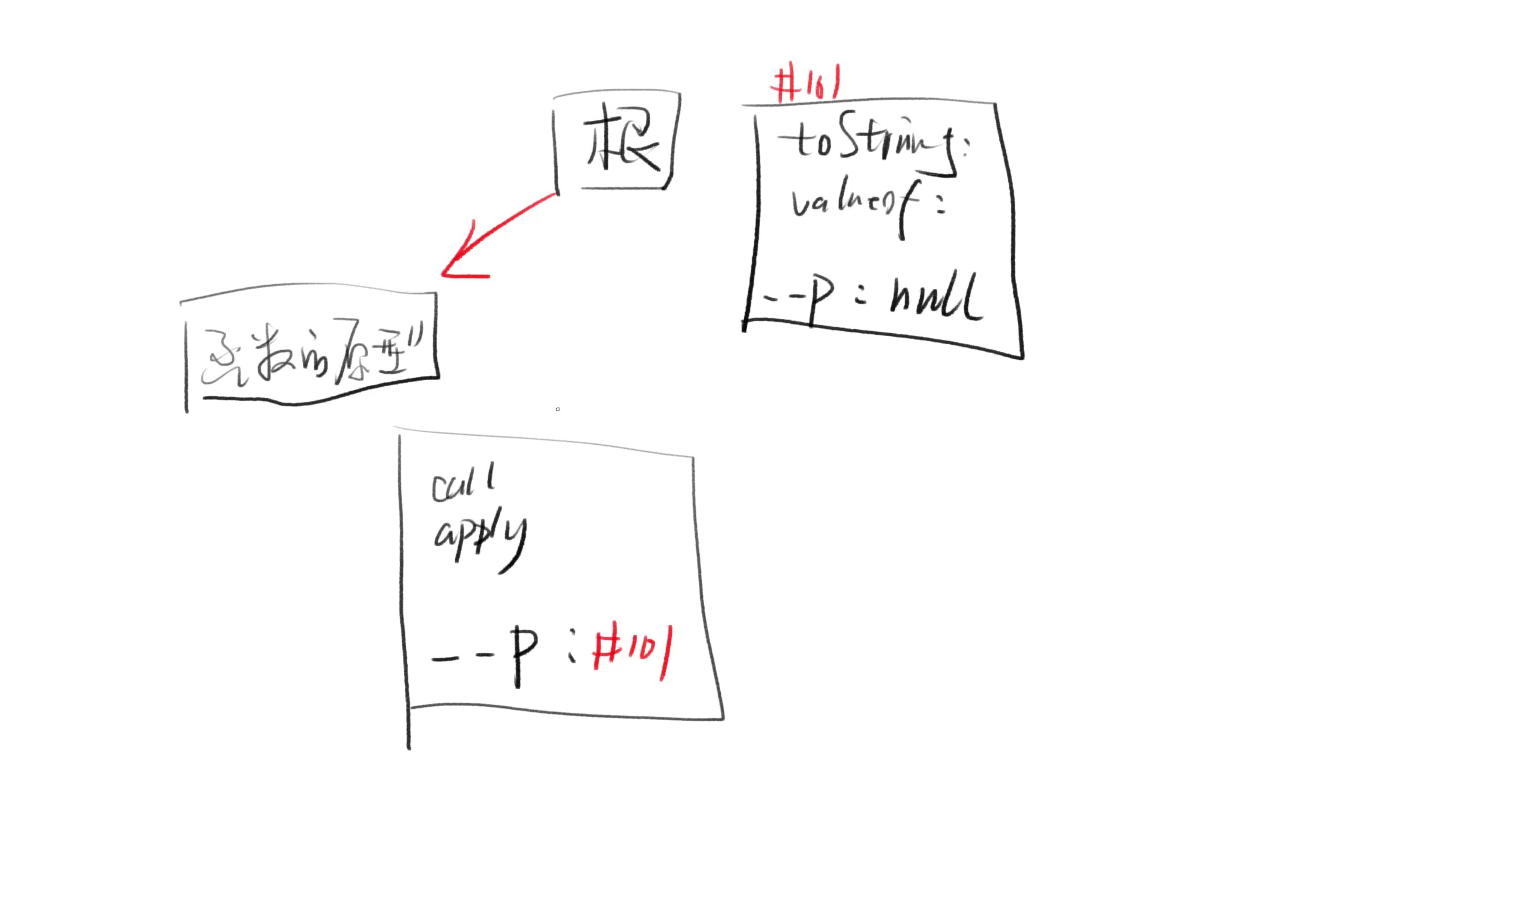 根
#101
toString:
valueof:
--p : null
函数的原型"
call
apply
--p : #101